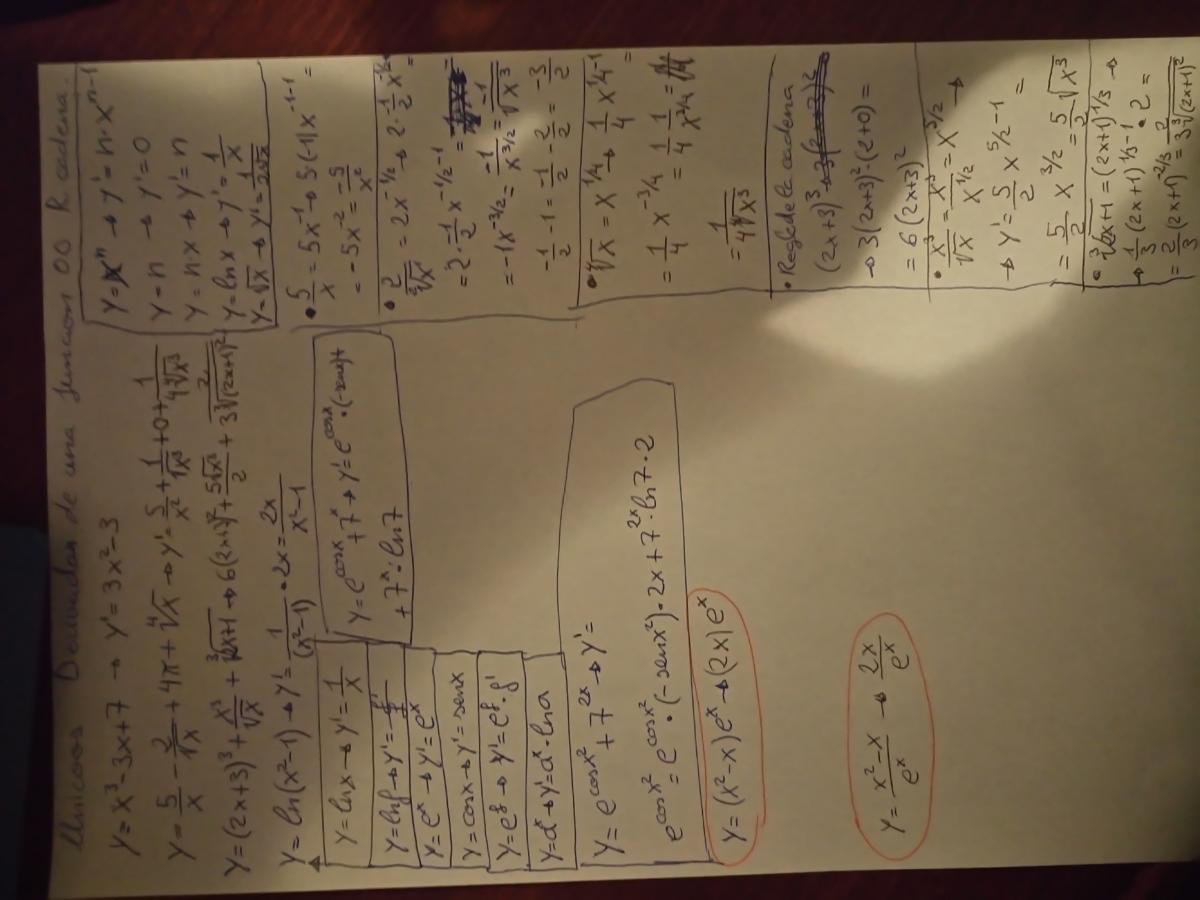 Derivadas de una funcion 00 R cadena.
y = x³ - 3x + 7 → y' = 3x² - 3
y = 5/x - 2/√x + 4π + ⁴√x → y' = 5/x² + 1/√x³ + 0 + 1/4⁴√x³
y = (2x+3)³ + x³/√x + ³√2x+1 → 6(2x+3)² + 5√x³/2 + 2/3³√(2x+1)²
y = ln(x²-1) → y' = 1/(x²-1) · 2x = 2x/x²-1
y = lnx → y' = 1/x
y = lnf → y' = f'/f
y = eˣ → y' = eˣ
y = cosx → y' = -senx
y = eᶠ → y' = eᶠ · f'
y = aˣ → y' = aˣ · lna
y = e^cosx + 7ˣ → y' = e^cosx · (-senx) +
+ 7ˣ · ln7
y = e^cosx² + 7^2x → y' =
e^cosx² = e^cosx² · (-senx²) · 2x + 7^2x · ln7 · 2
y = (x²-x)eˣ → (2x)eˣ
y = x²-x/eˣ → 2x/eˣ
y = xⁿ → y' = n · xⁿ⁻¹
y = n → y' = 0
y = nx → y' = n
y = lnx → y' = 1/x
y = √x → y' = 1/2√x
• 5/x = 5x⁻¹ → 5(-1)x⁻¹⁻¹ =
= -5x⁻² = -5/x²
• 2/²√x = 2x^-1/2 → 2 · 1/2 x^-1/2 =
= 2 · -1/2 x^-1/2-1 =
= -1x^-3/2 = -1/x^3/2 = -1/√x³
-1/2 - 1 = -1/2 - 2/2 = -3/2
• ⁴√x = x^1/4 → 1/4 x^1/4-1 =
= 1/4 x^-3/4 = 1/4 · 1/x^3/4 =
= 1/4⁴√x³
• Regla de la cadena
(2x+3)³
→ 3(2x+3)² · (2+0) =
= 6(2x+3)²
• x³/√x = x³/x^1/2 = x^5/2 →
→ y' = 5/2 x^5/2-1 =
= 5/2 x^3/2 = 5/2 √x³
• ³√2x+1 = (2x+1)^1/3 →
→ 1/3 (2x+1)^1/3-1 · 2 =
= 2/3 (2x+1)^-2/3 = 2/3³√(2x+1)²